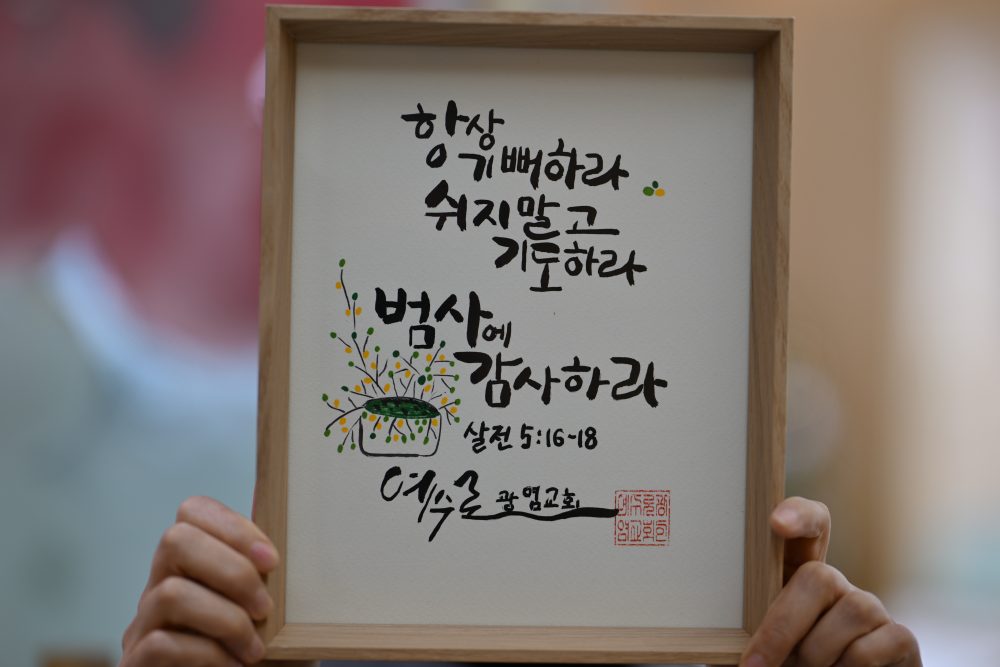 항상
기뻐하라
쉬지말고
기도하라
범사에
감사하라
살전 5:16-18
예수로 광염교회